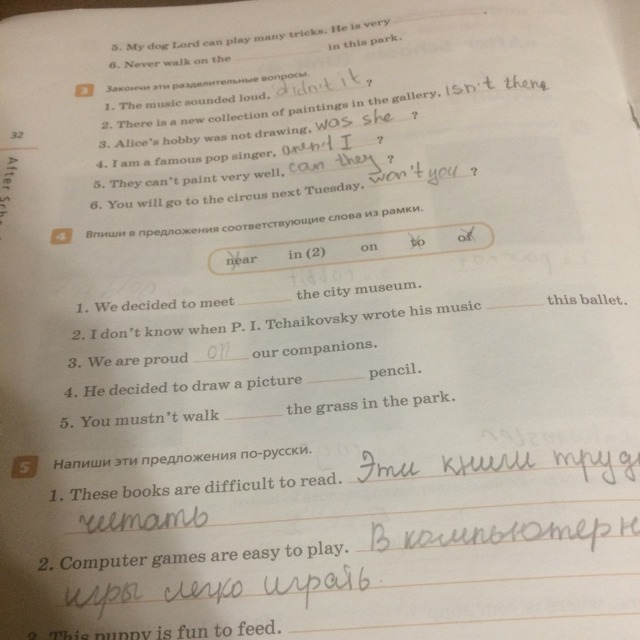 5. My dog Lord can play many tricks. He is very ___.
6. Never walk on the ___ in this park.
3 Закончи эти разделительные вопросы.
1. The music sounded loud, didn't it ?
2. There is a new collection of paintings in the gallery, isn't there
3. Alice's hobby was not drawing, was she ?
4. I am a famous pop singer, aren't I ?
5. They can't paint very well, can they ?
6. You will go to the circus next Tuesday, won't you ?
32
After
4 Впиши в предложения соответствующие слова из рамки.
near in (2) on to of
1. We decided to meet ___ the city museum.
2. I don't know when P. I. Tchaikovsky wrote his music ___ this ballet.
3. We are proud on our companions.
4. He decided to draw a picture ___ pencil.
5. You mustn't walk ___ the grass in the park.
5 Напиши эти предложения по-русски.
1. These books are difficult to read. Эти книги труд
читать
2. Computer games are easy to play. В компьютерн
игры легко играть.
3. This puppy is fun to feed.